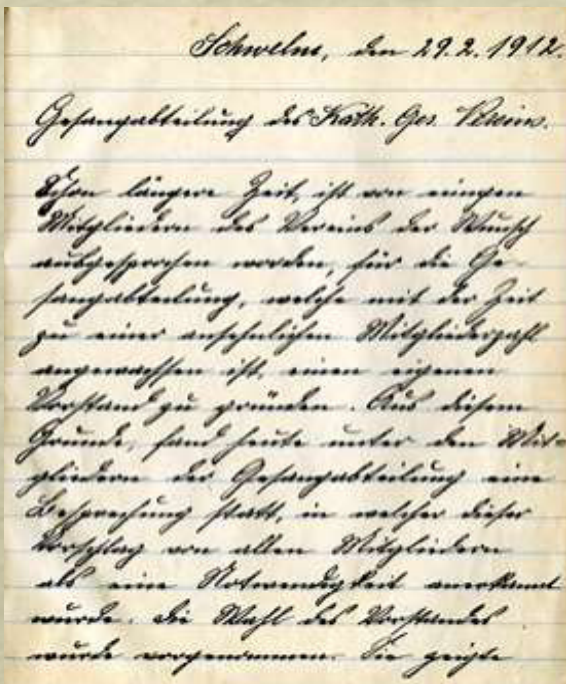 Schwelm, den 29.2.1912.
Gesangabteilung des Kath. Ges. Verein.
Schon längere Zeit, ist von einigen
Mitgliedern des Vereins der Wunsch
ausgesprochen worden, für die Ge-
sangabteilung, welche mit der Zeit
zu einer ansehnlichen Mitgliederzahl
angewachsen ist, einen eigenen
Vorstand zu gründen. Aus diesem
Grunde, fand heute unter den Mit=
gliedern der Gesangabteilung eine
Besprechung statt, in welcher dieser
Vorschlag von allen Mitgliedern
als eine Notwendigkeit anerkannt
wurde. Die Wahl des Vorstandes
wurde vorgenommen. Sie zeigte